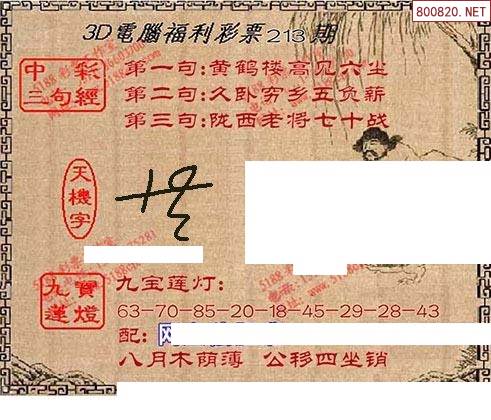 800820.NET
3D電腦福利彩票213期
中彩三句經
第一句:黄鹤楼高见六尘
第二句:久卧穷乡五负薪
第三句:陇西老将七十战
天機字
九寶蓮燈
九宝莲灯:
63-70-85-20-18-45-29-28-43
配:
八月木荫薄 公移四坐销